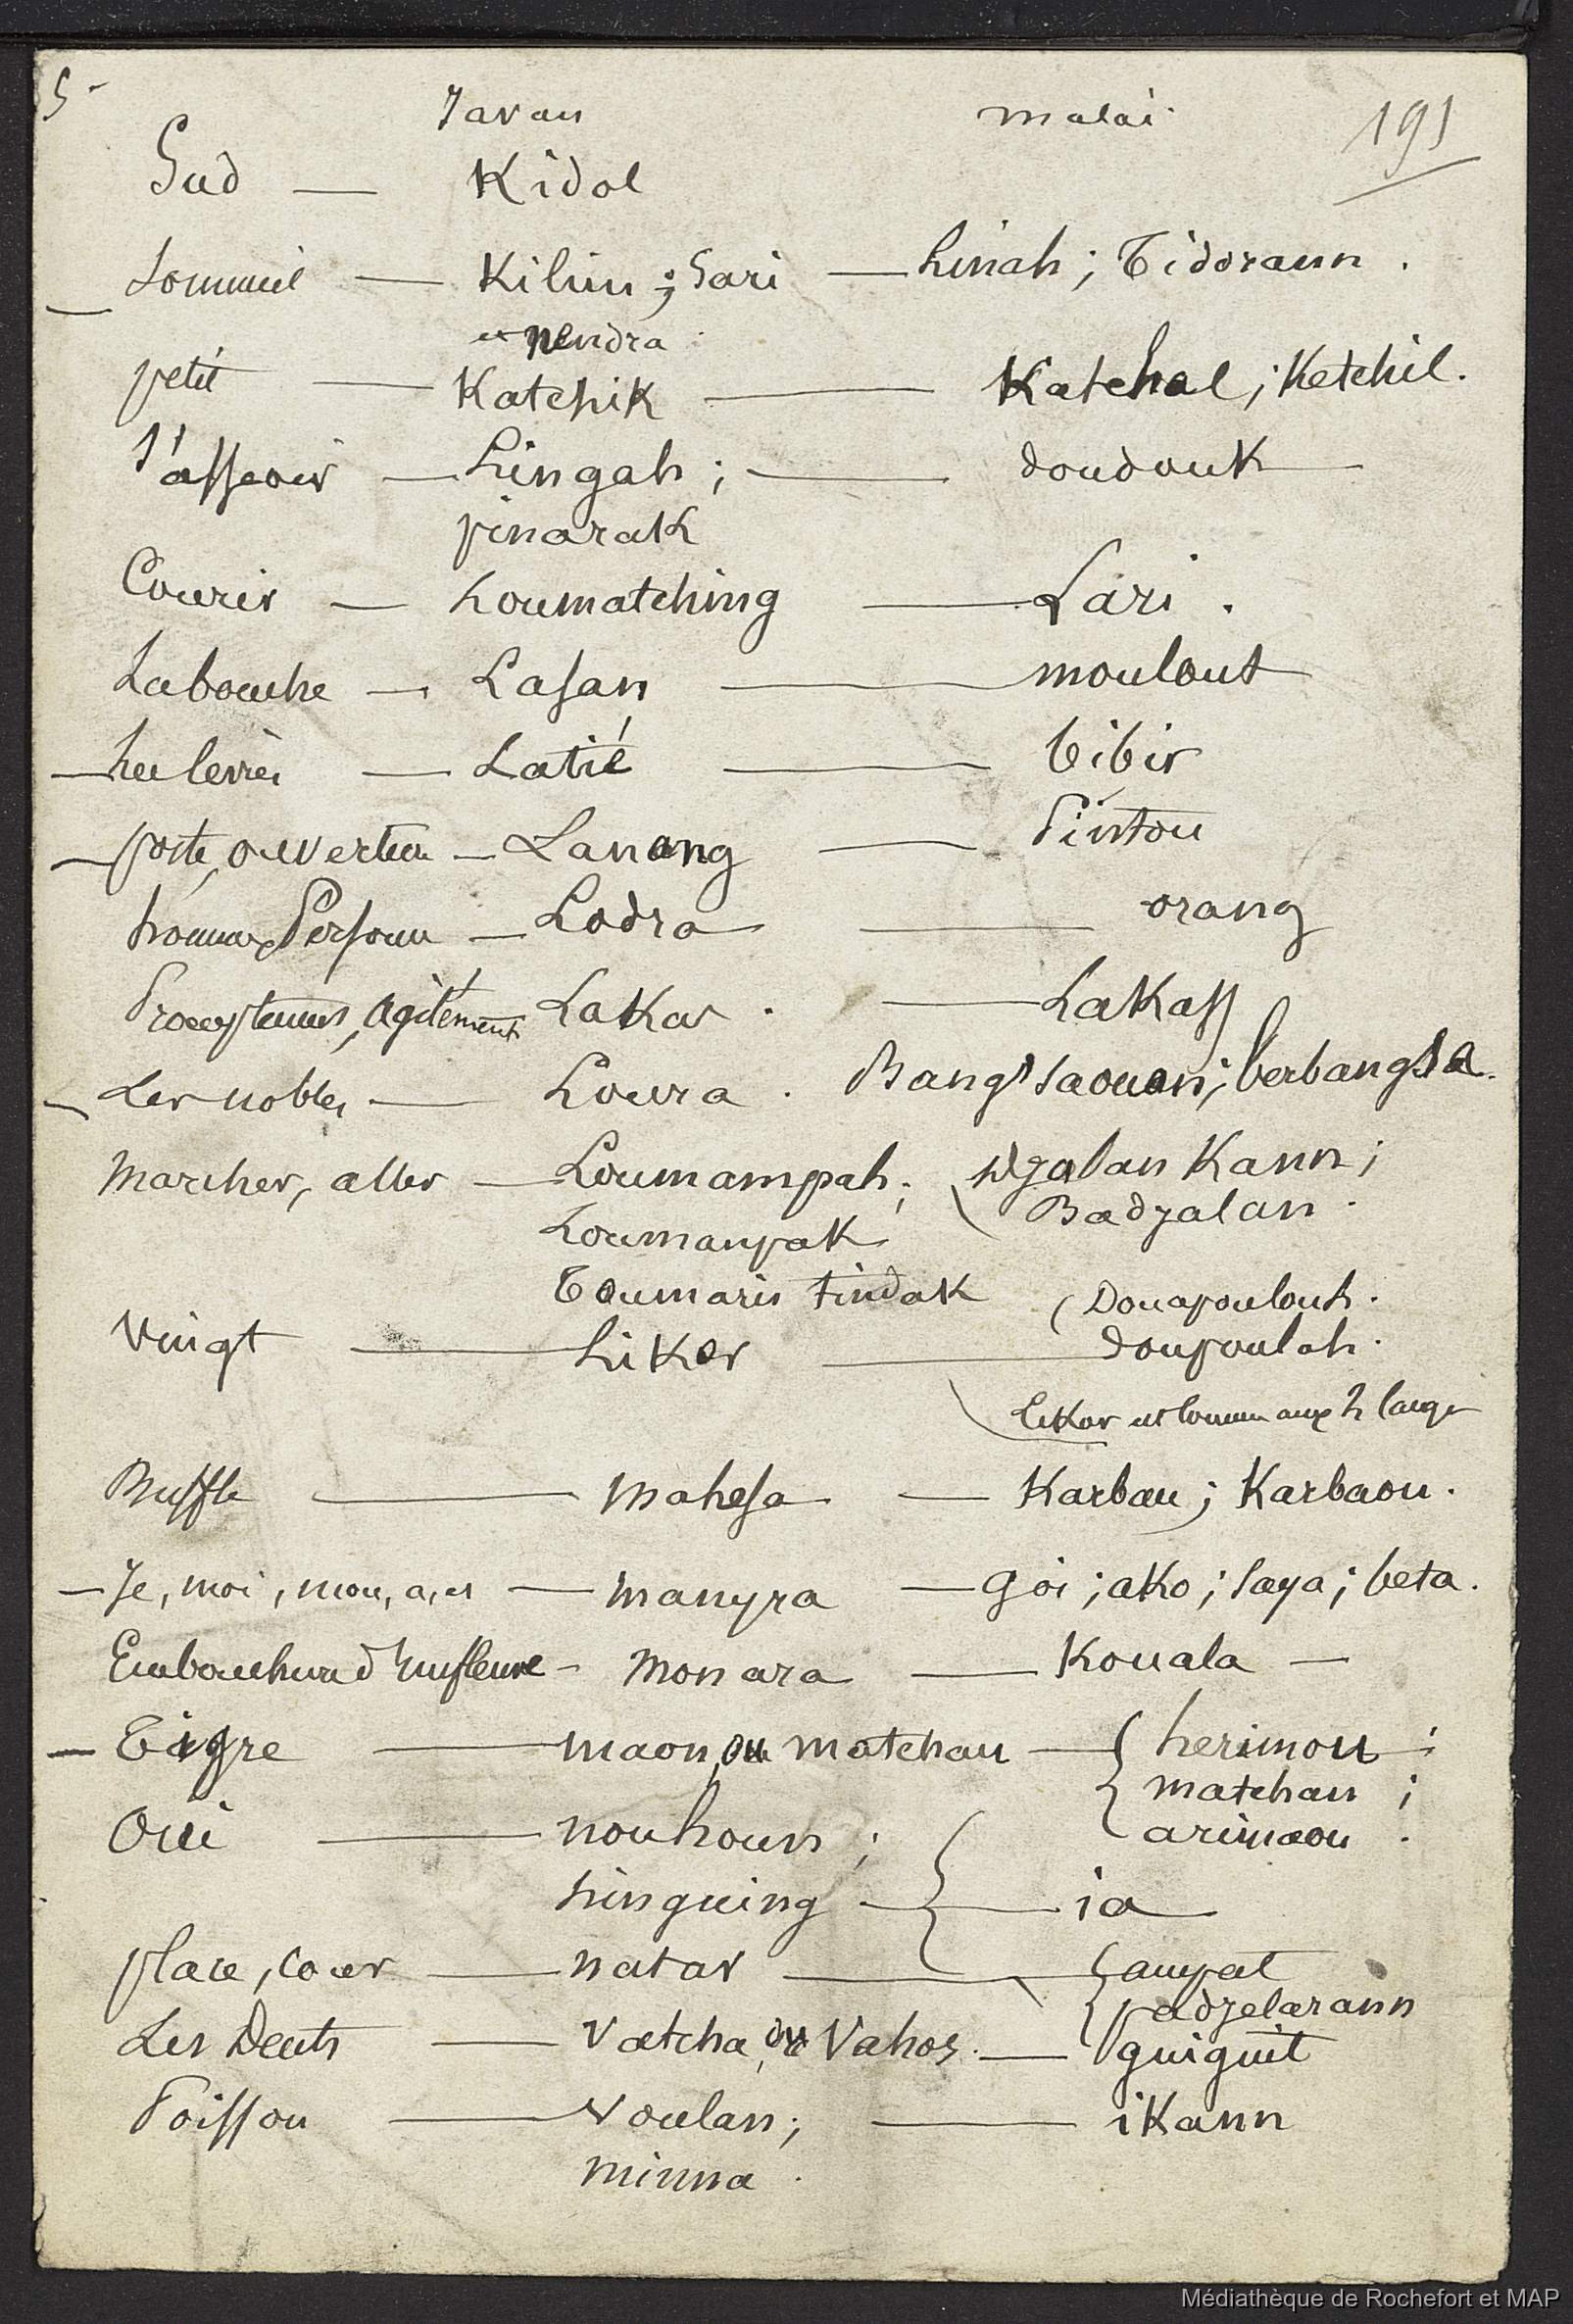 5
Javan malai 191
Sud — Kidol
Sommeil — Kilim; Sari — Linah; Tidorann.
et nendra
petit — Katchik — Katchal; Ketchil.
S'asseoir — Lingah; — doudouk
pinarak
Courir — Loumatching — Lari.
La bouche — Lasan — moulout
Les levres — Latié — bibir
porte, ouverture — Lanang — Pintou
homme, Personne — Lodra — orang
promptement, agilement Lakas. — Lakass
Les nobles — Loura. Bangsaouan; berbangsa.
Marcher, aller — Loumampah; djalan Kann;
Badjalan.
Loumanpak
Toumaris tindak Douapoulouh.
Vingt — Likor — doupoulah.
Likor est commun aux 2 langues
Buffle — mahesa — Karbau; Karbaou.
— Je, moi, mon, a, es — manyra — goi; ako; saya; beta.
Embouchure d'un fleuve — monara — Kouala —
— Tigre — maon, ou matchan — herimou;
matchan;
Oui — nouhoun; arimaou.
hinguing — ia
place, cour — natar — ampat
padjelarann
Les Dents — Vatcha, ou Vahos. — guiguit
Poisson — voulan; — ikann
minna.
Médiathèque de Rochefort et MAP